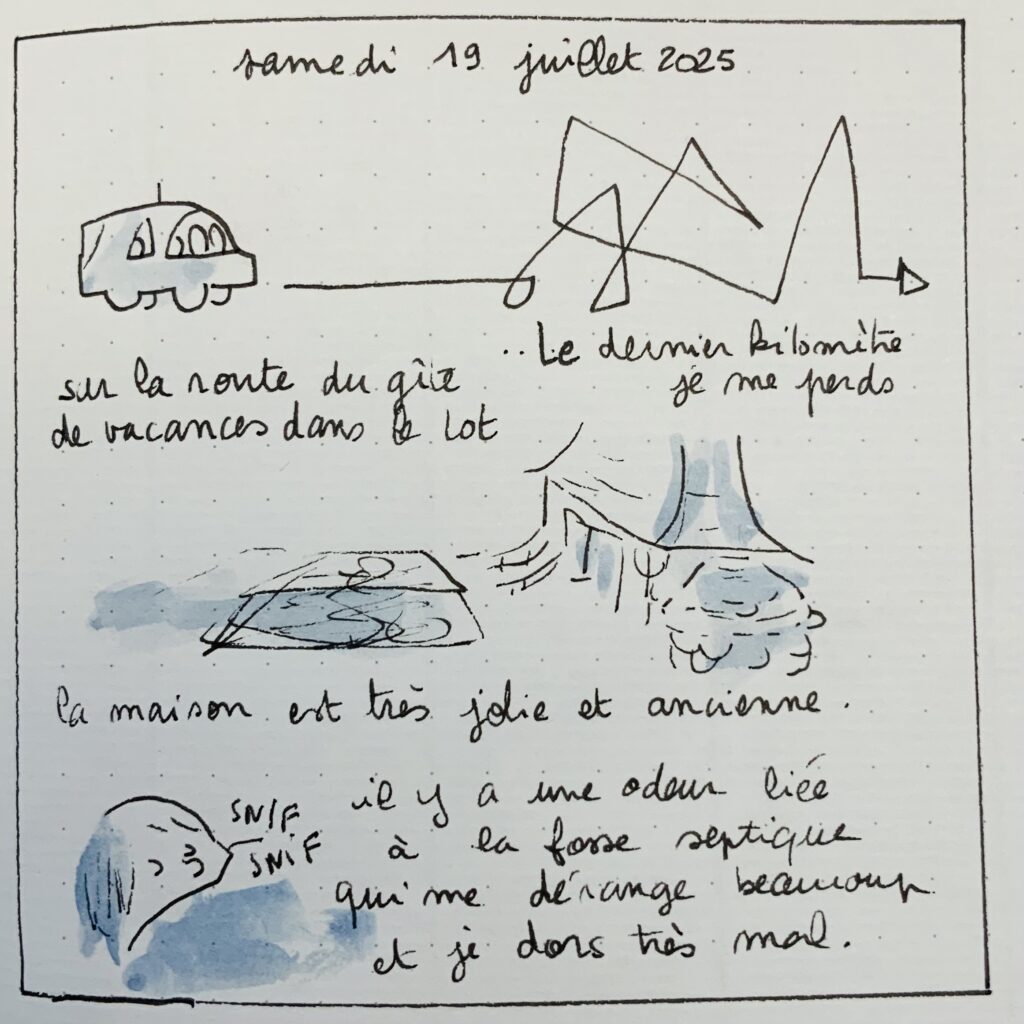 samedi 19 juillet 2025
sur la route du gîte
de vacances dans le Lot
..Le dernier kilomètre
je me perds
la maison est très jolie et ancienne.
SNIF
SNIF
il y a une odeur liée
à la fosse septique
qui me dérange beaucoup
et je dors très mal.